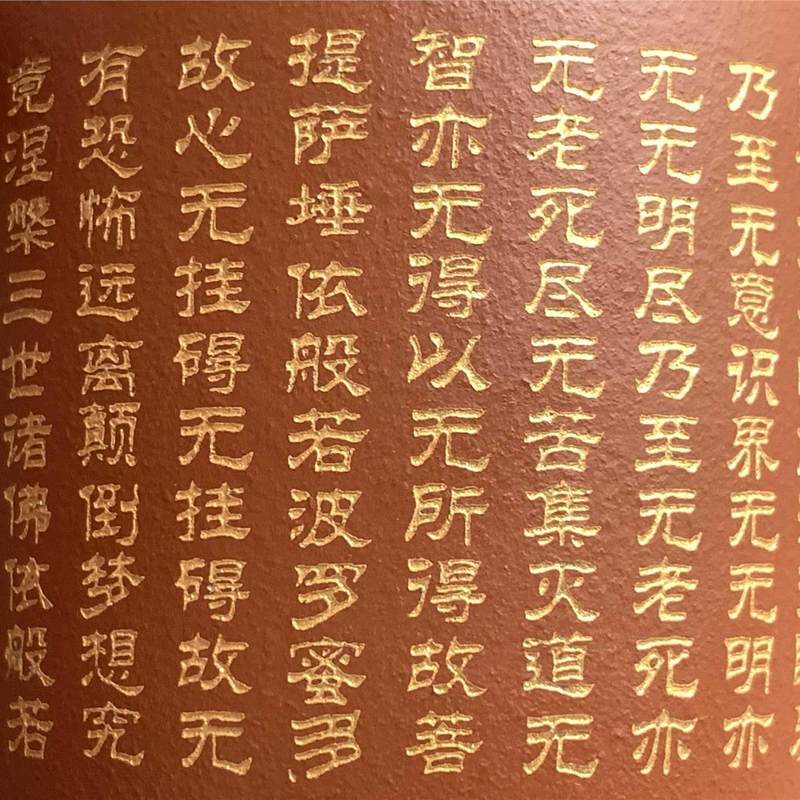 乃至无意识界无无明亦
无无明尽乃至无老死亦
无老死尽无苦集灭道无
智亦无得以无所得故菩
提萨埵依般若波罗蜜多
故心无挂碍无挂碍故无
有恐怖远离颠倒梦想究
竟涅槃三世诸佛依般若